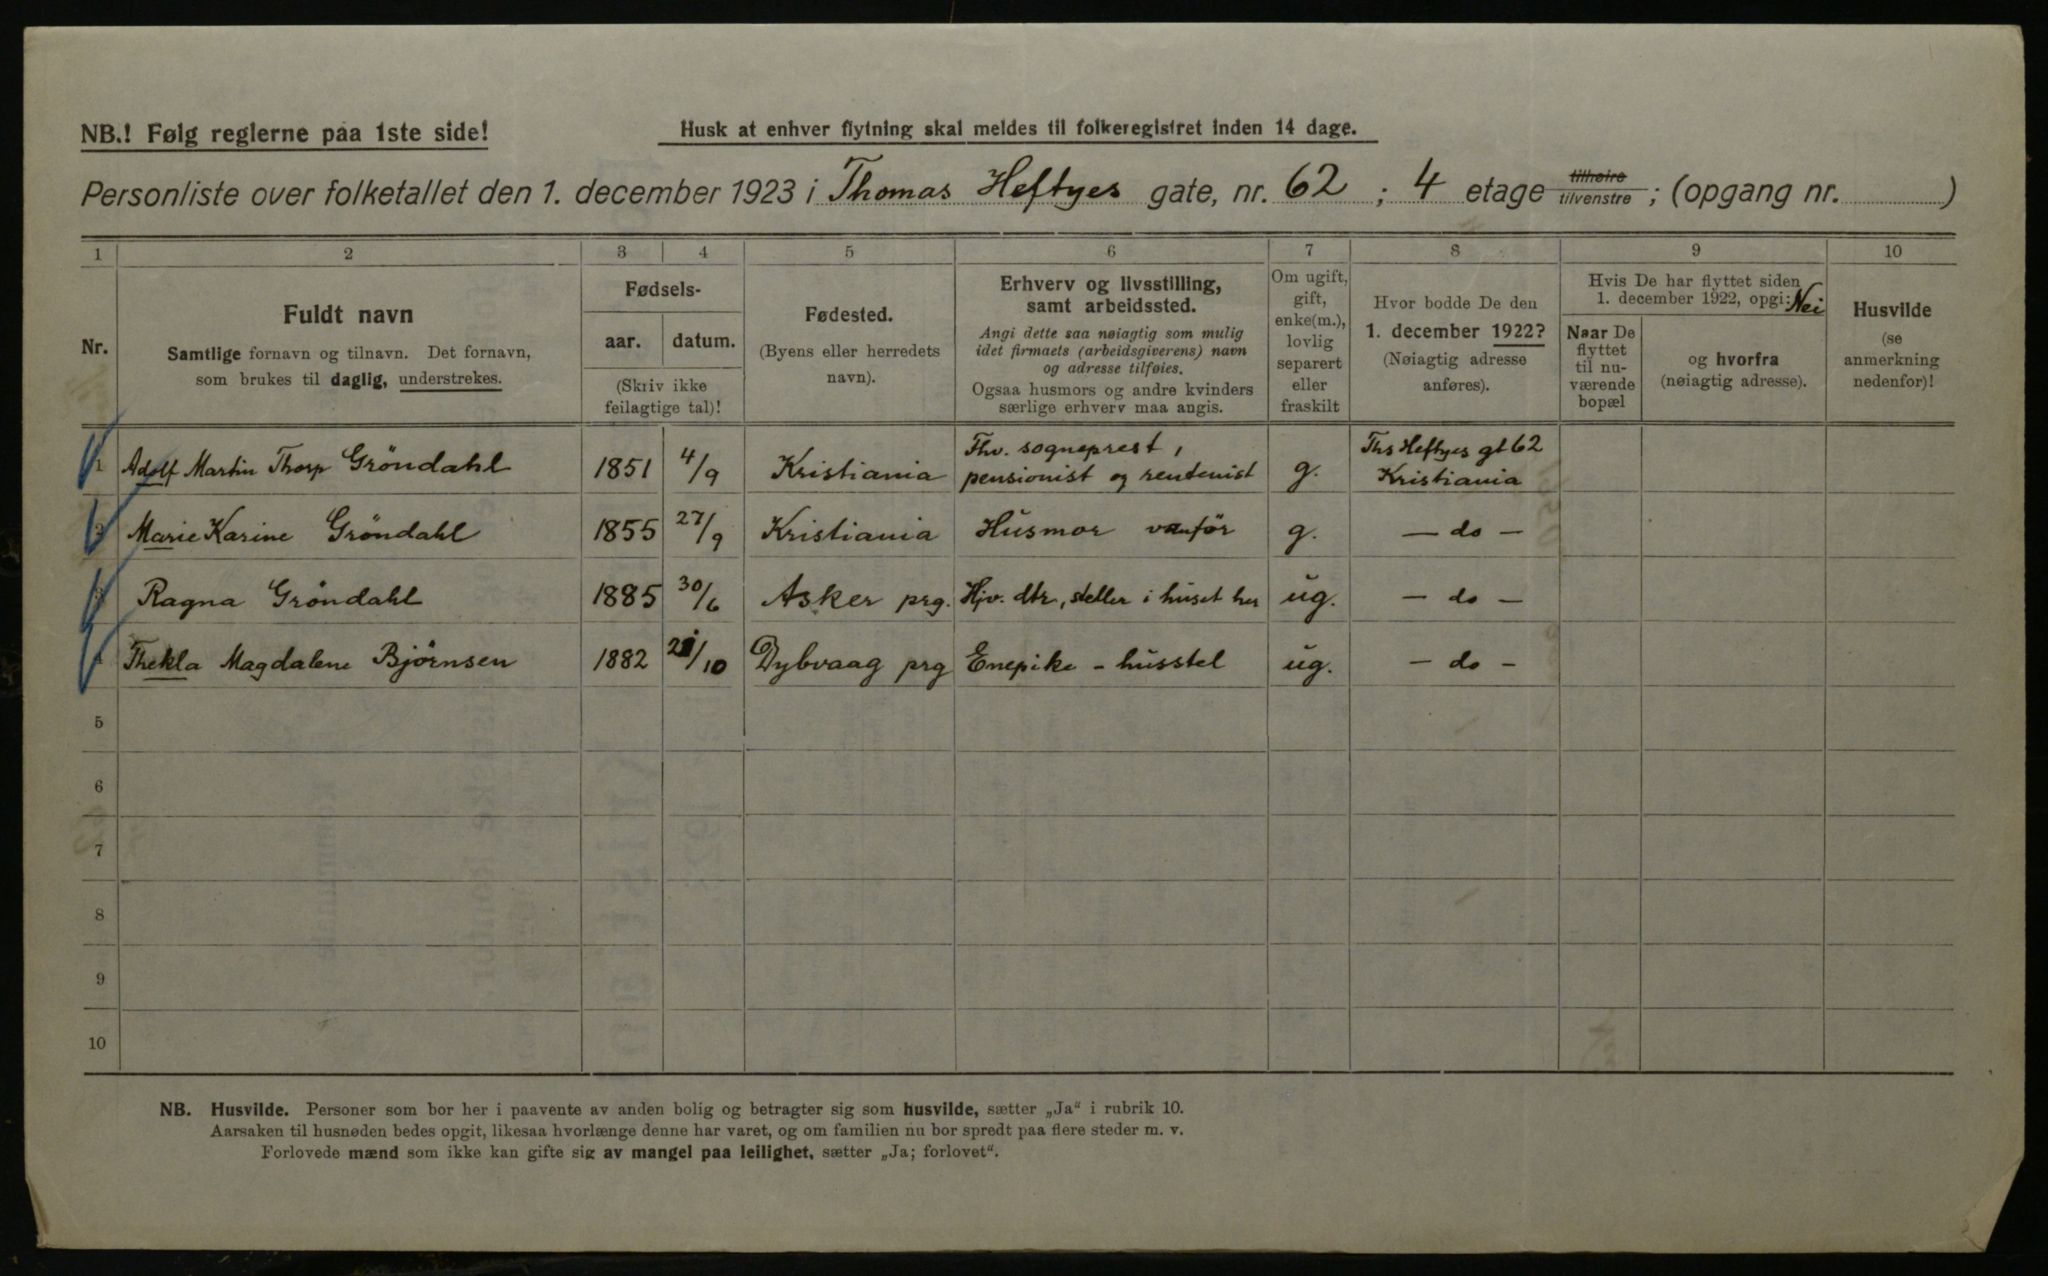 NB.! Følg reglerne paa 1ste side!
Husk at enhver flytning skal meldes til folkeregistret inden 14 dage.
Personliste over folketallet den 1. december 1923 i Thomas Heftyes gate, nr. 62 ; 4 etage tilhøire tilvenstre ; (opgang nr. )
1 2 3 4 5 6 7 8 9 10
Nr.
Fuldt navn
Samtlige fornavn og tilnavn. Det fornavn,
som brukes til daglig, understrekes.
Fødsels-
aar. datum.
(Skriv ikke
feilagtige tal)!
Fødested.
(Byens eller herredets
navn).
Erhverv og livsstilling,
samt arbeidssted.
Angi dette saa nøiagtig som mulig
idet firmaets (arbeidsgiverens) navn
og adresse tilføies.
Ogsaa husmors og andre kvinders
særlige erhverv maa angis.
Om ugift,
gift,
enke(m.),
lovlig
separert
eller
fraskilt
Hvor bodde De den
1. december 1922?
(Nøiagtig adresse
anføres).
Hvis De har flyttet siden
1. december 1922, opgi: Nei
Naar De
flyttet
til nu-
værende
bopæl
og hvorfra
(nøiagtig adresse).
Husvilde
(se
anmerkning
nedenfor)!
1 Adolf Martin Thorp Gröndahl 1851 4/9 Kristiania Fhv. sogneprest, pensionist og rentenist g. Ths Heftyes gt 62 Kristiania
2 Marie Karine Gröndahl 1855 27/9 Kristiania Husmor vanför g. — do —
3 Ragna Gröndahl 1885 30/6 Asker prg. Hjv. dtr, steller i huset her ug. — do —
4 Thekla Magdalene Björnsen 1882 /10 Dybvaag prg Enepike - husstel ug. — do —
5
6
7
8
9
10
NB. Husvilde. Personer som bor her i paavente av anden bolig og betragter sig som husvilde, sætter „Ja" i rubrik 10.
Aarsaken til husnøden bedes opgit, likesaa hvorlænge denne har varet, og om familien nu bor spredt paa flere steder m. v.
Forlovede mænd som ikke kan gifte sig av mangel paa leilighet, sætter „Ja; forlovet".